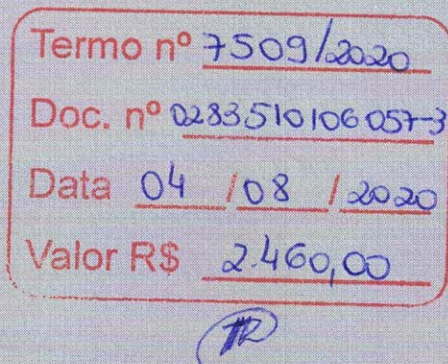 Termo nº 7509/2020
Doc. nº 0283510106057-3
Data 04 / 08 / 2020
Valor R$ 2.460,00